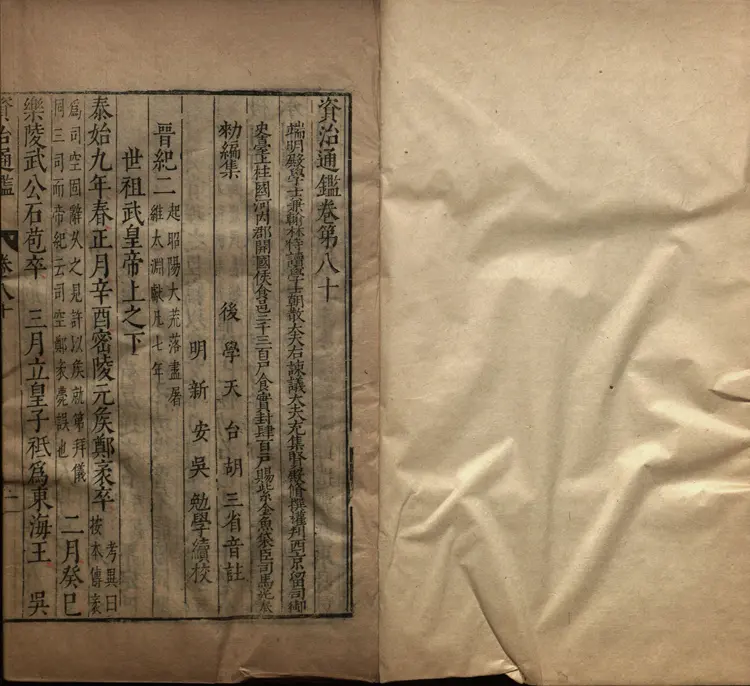 資治通鑑卷第八十
端明殿學士兼翰林侍讀學士朝散大夫右諫議大夫充集賢殿脩撰權判西京留司御
史臺上柱國河內郡開國侯食邑三千三百戶食實封肆百戶賜紫金魚袋臣司馬光奉
勑編集
後學天台胡三省音註
明新安吳勉學續校
晉紀二
起昭陽大荒落盡屠
維太淵獻凡七年
世祖武皇帝上之下
泰始九年春正月辛酉密陵元矦鄭袤卒
考異曰
按本傳袤
爲司空固辭久之見許以矦就第拜儀
同三司而帝紀云司空鄭袤薨誤也
二月癸巳
樂陵武公石苞卒
三月立皇子祗爲東海王
吳
資治通鑑
卷八十
一